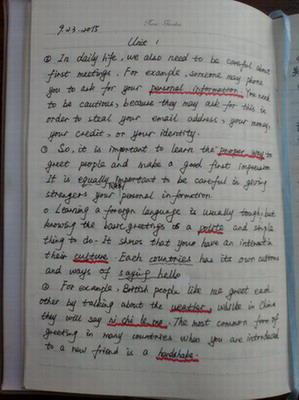 9.23.2015
Unit 1
② In daily life, we also need to be careful about
first meetings. For example, someone may phone
you to ask for your personal information. You need
to be cautious, because they may ask for this in
order to steal your email address, your money,
your credit, or your identity.
③ So, it is important to learn the proper way to
greet people and make a good first impression.
It is equally important to be careful in giving
strangers your personal information.
① Learning a foreign language is usually tough, but
knowing the basic greetings is a polite and simple
thing to do. It shows that you have an interest in
their culture. Each countries has its own customs
and ways of saying hello.
② For example, British people like me greet each
other by talking about the weather, while in China
they will say ni chi le ma. The most common form of
greeting in many countries when you are introduced
to a new friend is a handshake.